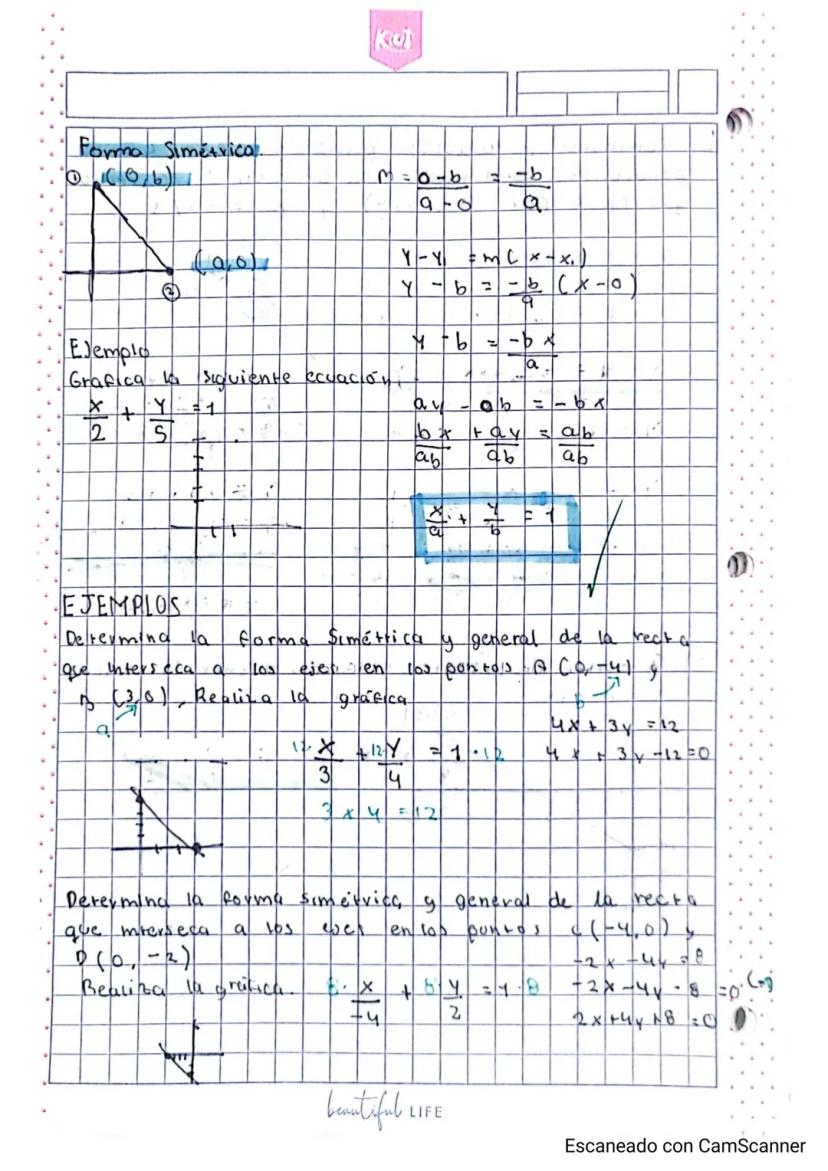 KUT
Forma Simétrica.
① (0,b)
m = 0-b / a-0 = -b / a
(a,0)
②
y-y₁ = m(x-x₁)
y - b = -b/a (x-0)
y - b = -bx/a
Ejemplo
Grafica la siguiente ecuación.
x/2 + y/5 = 1
ay - ab = -bx
bx/ab + ay/ab = ab/ab
x/a + y/b = 1
EJEMPLOS
Determina la forma Simétrica y general de la recta
que interseca a los ejes en los puntos A (0,-4) y
B (3,0), Realiza la gráfica
a
b
4x + 3y = 12
12· x/3 + 12· y/4 = 1 · 12
4x + 3y - 12 = 0
3 x 4 = 12
Determina la forma simétrica y general de la recta
que interseca a los ejes en los puntos C (-4,0) y
D (0, -2)
-2x - 4y = 8
Realiza la gráfica.
8· x/-4 + 8· y/2 = 1 · 8
-2x - 4y - 8 = 0
2x + 4y + 8 = 0
beautiful LIFE
Escaneado con CamScanner